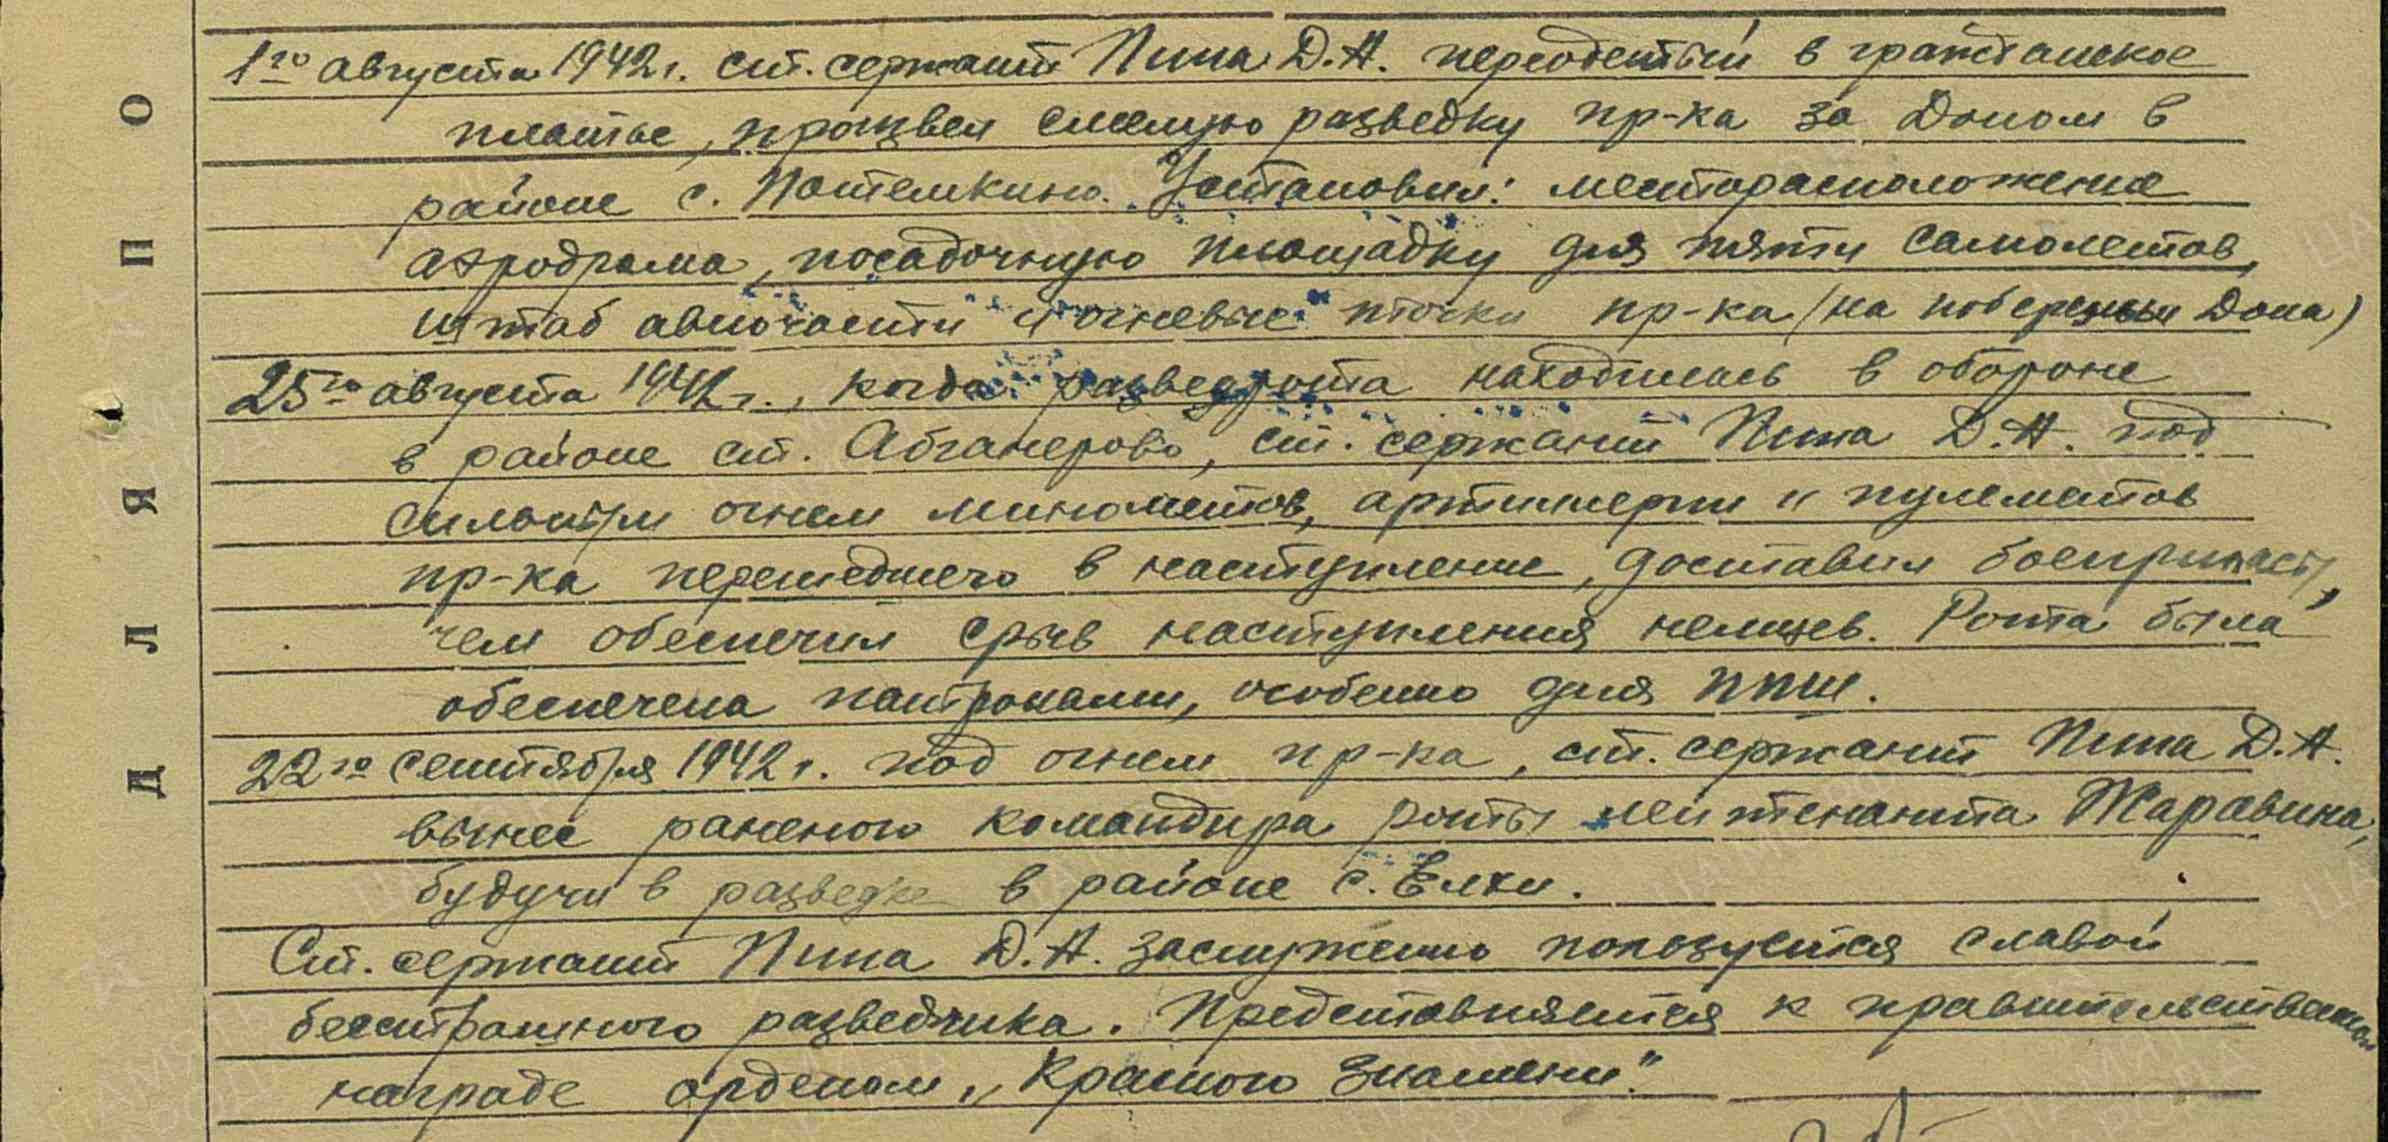 1го августа 1942г. ст. сержант Пипа Д.А. переодетый в гражданское
платье, произвел смелую разведку пр-ка за Доном в
районе с. Потемкино. Установил: месторасположение
аэродрома, посадочную площадку для пяти самолетов,
штаб авиочасти и огневые точки пр-ка (на побережьи Дона)
25го августа 1942г., когда разведрота находилась в обороне
в районе ст. Абганерово, ст. сержант Пипа Д.А. под
сильным огнем минометов, артиллерии и пулеметов
пр-ка перешедшего в наступление, доставил боеприпасы,
чем обеспечил срыв наступления немцев. Рота была
обеспечена патронами, особенно для ППШ.
22го сентября 1942г. под огнем пр-ка, ст. сержант Пипа Д.А.
вынес раненого командира роты лейтенанта Жаравина,
будучи в разведке в районе с. Елхи.
Ст. сержант Пипа Д.А. заслуженно пользуется славой
бесстрашного разведчика. Представляется к правительственной
награде орденом „Красного Знамени".
ДЛЯ ПО